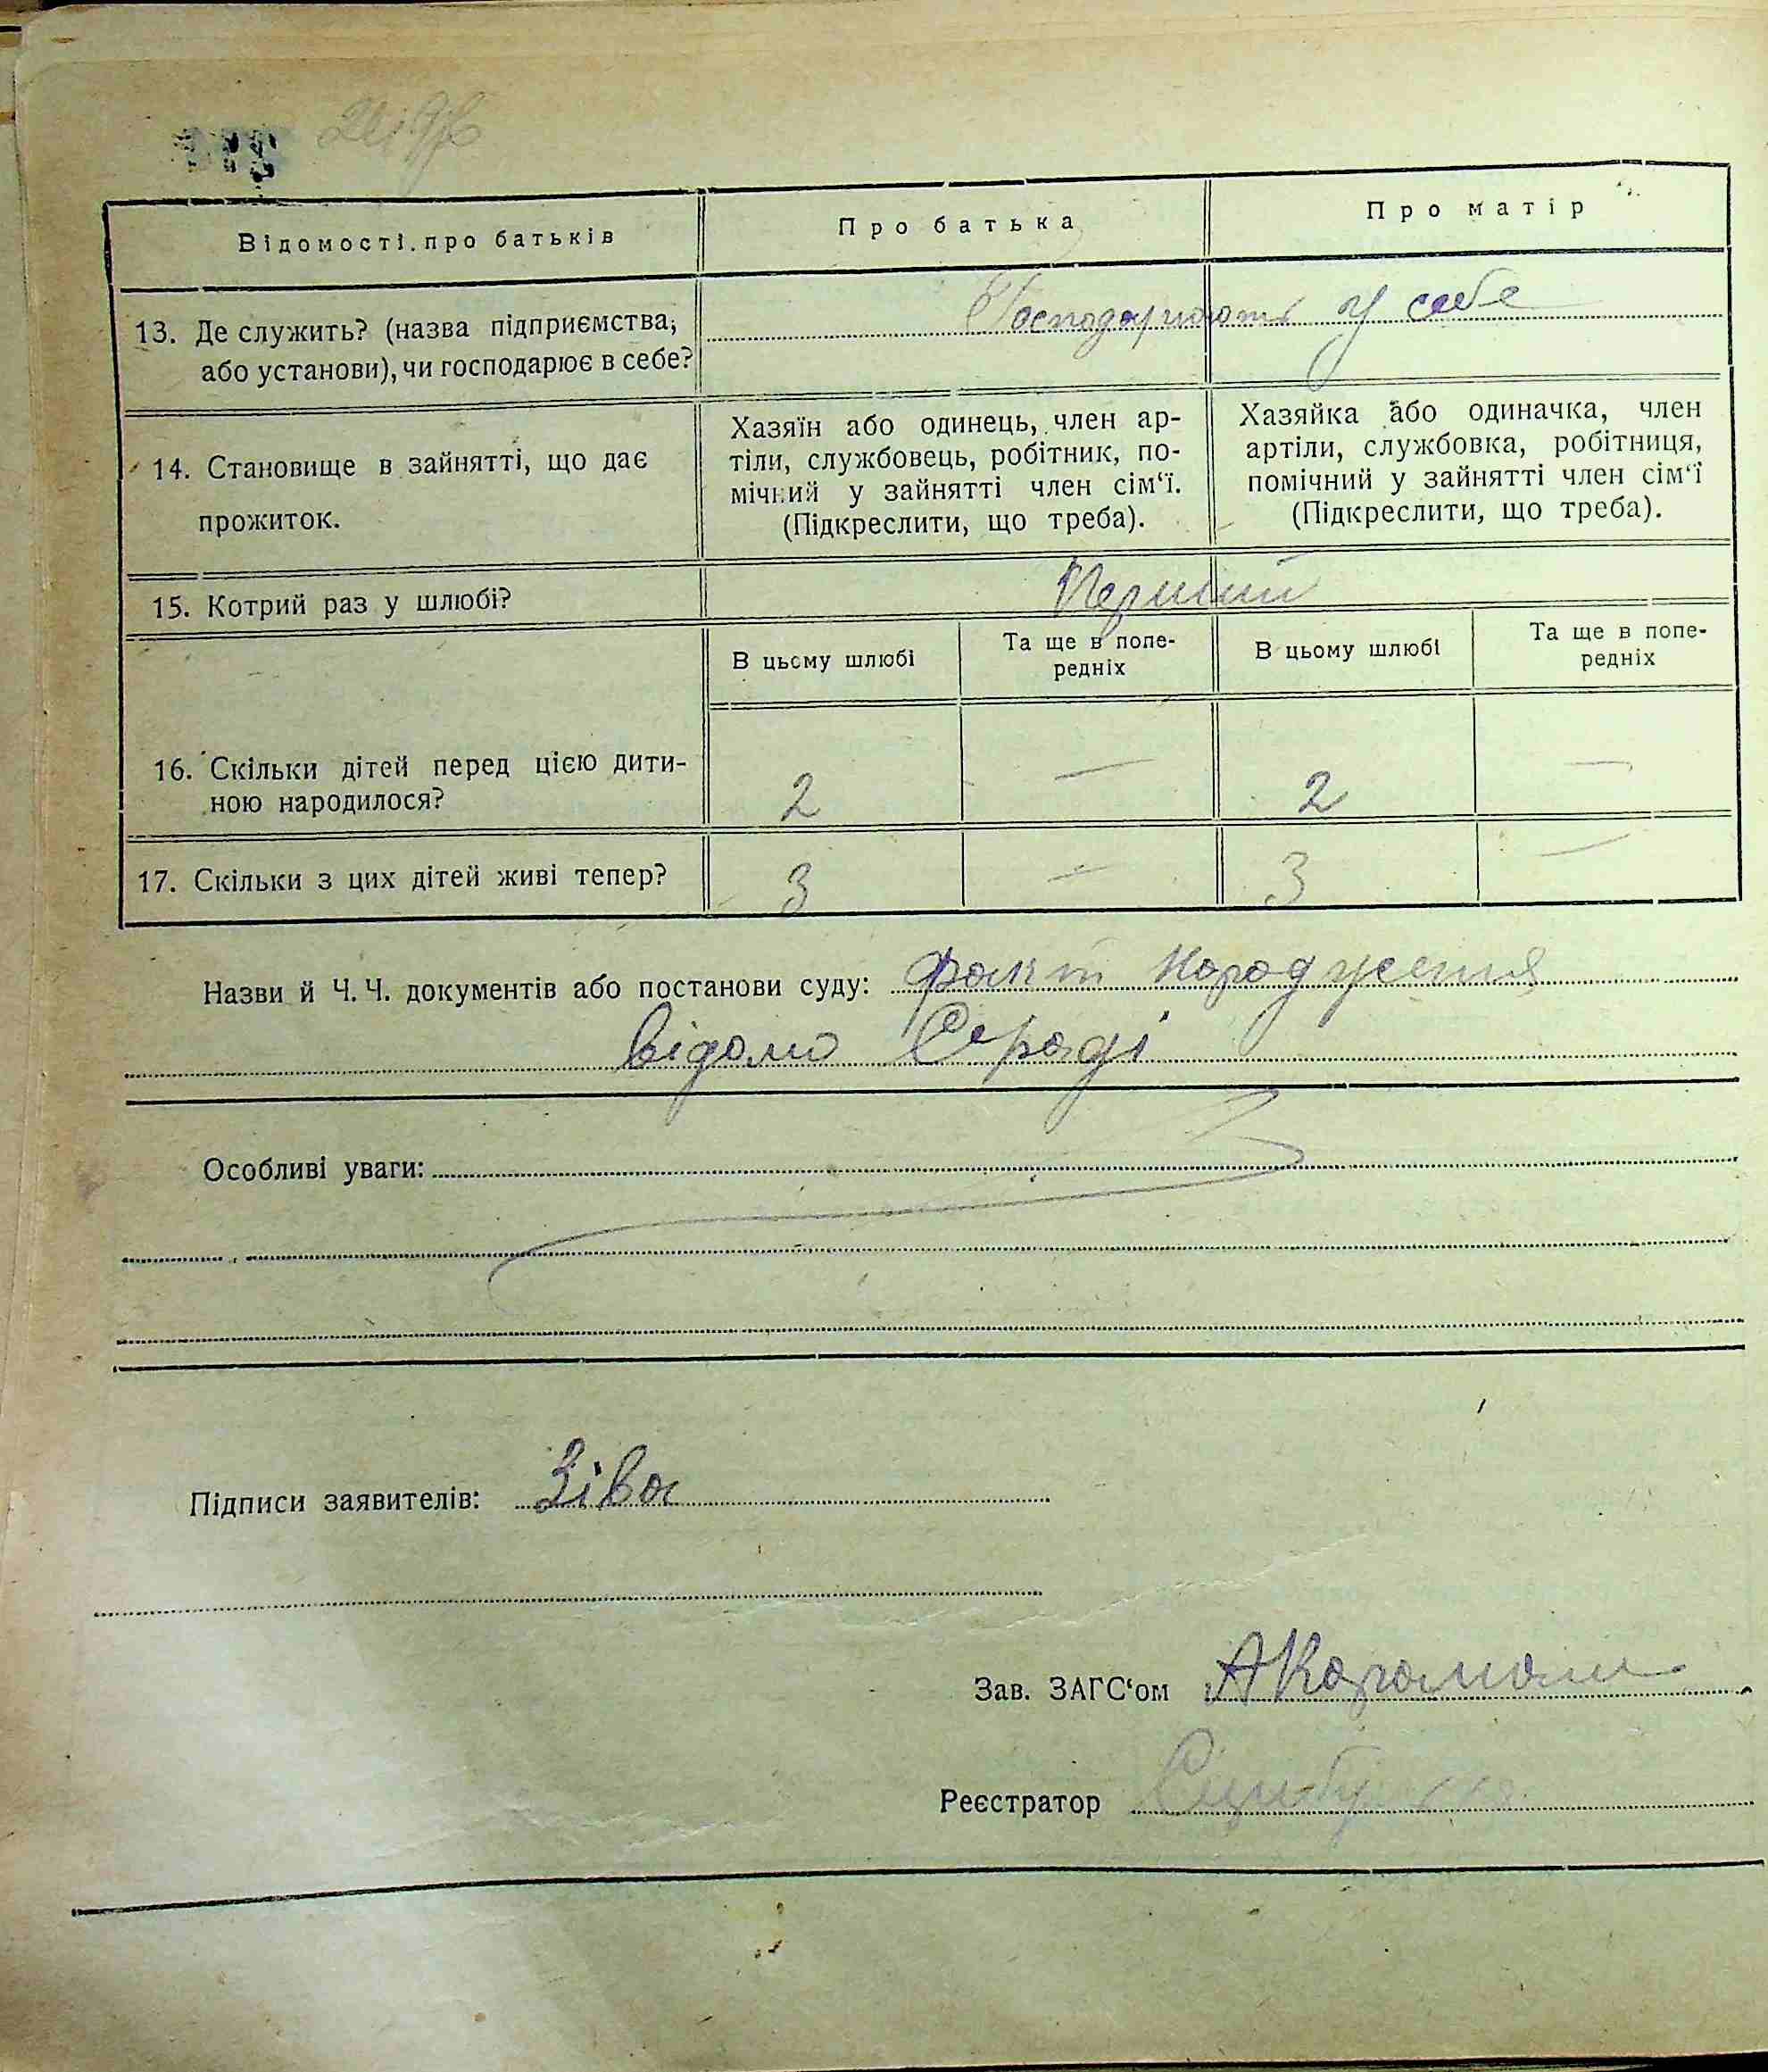 Відомості про батьків
Про батька
Про матір
13. Де служить? (назва підприємства, або установи), чи господарює в себе?
Господарюють у себе
14. Становище в зайнятті, що дає прожиток.
Хазяїн або одинець, член ар-
тіли, службовець, робітник, по-
мічний у зайнятті член сім‘ї.
(Підкреслити, що треба).
Хазяйка або одиначка, член
артіли, службовка, робітниця,
помічний у зайнятті член сім‘ї
(Підкреслити, що треба).
15. Котрий раз у шлюбі?
Перший
В цьому шлюбі
Та ще в попе-
редніх
В цьому шлюбі
Та ще в попе-
редніх
16. Скільки дітей перед цією дити-
ною народилося?
2 — 2 —
17. Скільки з цих дітей живі тепер? 3 — 3 —
Назви й Ч. Ч. документів або постанови суду: Факт народження
відомо Сераді
Особливі уваги:
Підписи заявителів: Зіва
Зав. ЗАГС‘ом
Реєстратор